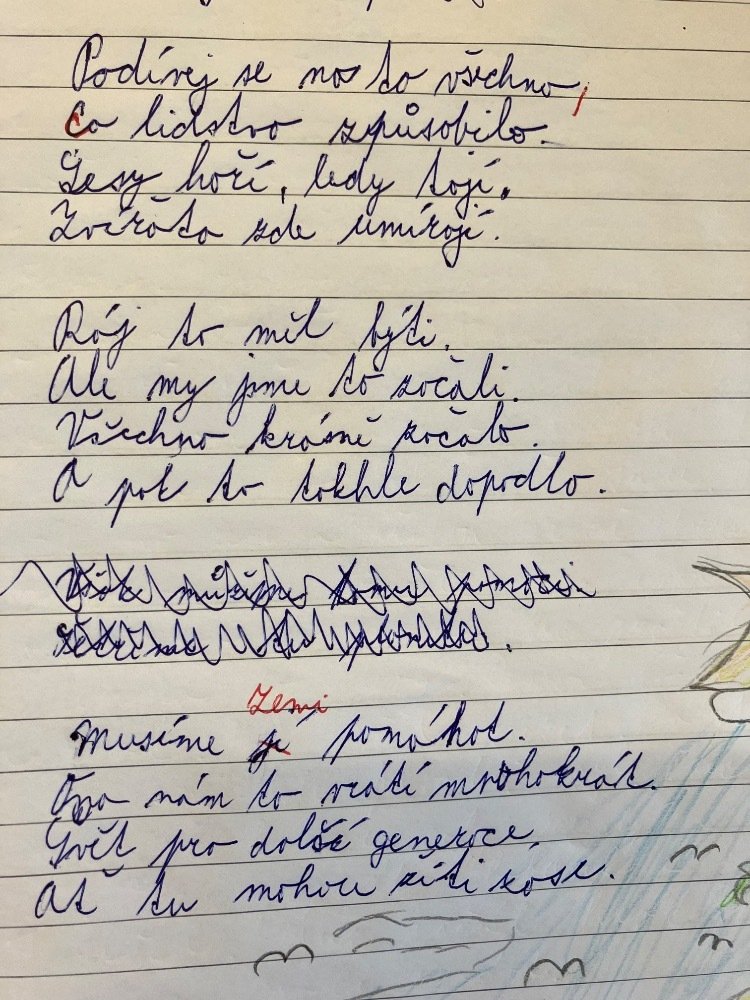 Podívej se na to všechno,
co lidstvo způsobilo.
Lesy hoří, ledy tají.
Zvířata zde umírají.
Ráj to měl býti.
Ale my jsme to začali.
Všechno krásně začalo.
A pak to takhle dopadlo.
Zemi
Musíme jí pomáhat.
Ona nám to vrátí mnohokrát.
Svět pro další generace
Ať tu mohou žíti zase.